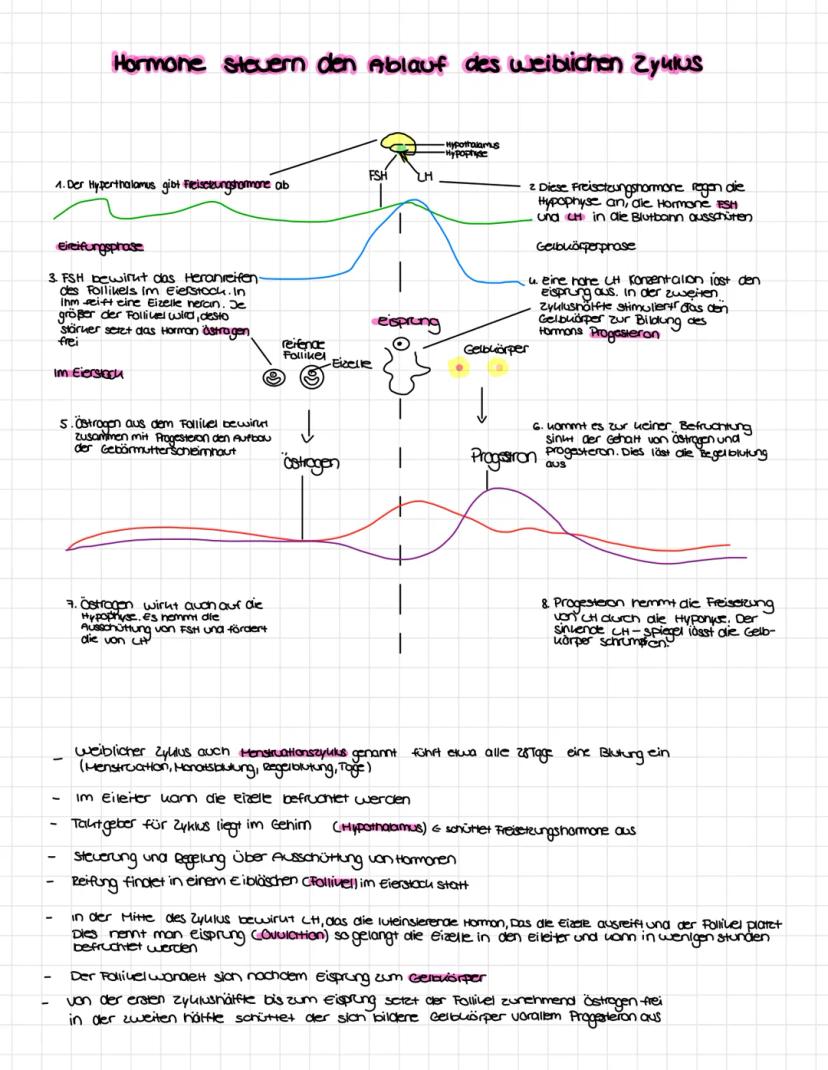 Hormone steuern den Ablauf des weiblichen Zyklus
Hypothalamus
Hypophyse
FSH
LH
1. Der Hyperthalamus gibt Freisetzungshormone ab
2 Diese Freisetzungshormone regen die
Hypophyse an, die Hormone FSH
und LH in die Blutbahn ausschütten
Eireifungsphase
Gelbkörperphase
3. FSH bewirkt das Heranreifen
des Follikels im Eierstock. In
Ihm reift eine Eizelle heran. Je
größer der Follikel wird, desto
stärker setzt das Hormon Östrogen
frei
4. eine hohe LH Konzentation löst den
Eisprung aus. In der zweiten
Zyklushälfte stimuliert das den
Gelbkörper zur Bildung des
Hormons Progesteron
Eisprung
reifende
Follikel
Eizelle
Gelbkörper
Im Eierstock
5. Östrogen aus dem Follikel bewirkt
zusammen mit Progesteron den Aufbau
der Gebärmutterschleimhaut
6. kommt es zur keiner Befruchtung
sinkt der Gehalt von Östrogen und
Progesteron. Dies löst die Regelblutung
aus
Östrogen
Progestron
7. Östrogen wirkt auch auf die
Hypophyse. Es hemmt die
Ausschüttung von FSH und fördert
die von LH
8. Progesteron hemmt die Freisetzung
von LH durch die Hyponyse. Der
sinkende LH-Spiegel lässt die Gelb-
körper schrumpfen.
- weiblicher Zyklus auch Menstruationszyklus genannt führt etwa alle 28 Tage eine Blutung ein
(Menstruation, Monatsblutung, Regelblutung, Tage)
- im Eileiter kann die Eizelle befruchtet werden
- Taktgeber für Zyklus liegt im Gehirn (Hypothalamus) ← schüttet Freisetzungshormone aus
- Steuerung und Regelung über Ausschüttung von Hormonen
- Reifung findet in einem Eibläschen (Follikel) im Eierstock statt
- in der Mitte des Zyklus bewirkt LH, das die luteinsierende Hormon, Das die Eizelle ausreift und der Follikel platzt
Dies nennt man Eisprung (Ovulation) so gelangt die Eizelle in den Eileiter und kann in wenigen Stunden
befruchtet werden
- Der Follikel wandelt sich nachdem Eisprung zum Gelbkörper
- von der ersten Zyklushälfte bis zum Eisprung setzt der Follikel zunehmend Östrogen frei
in der zweiten Hälfte schüttet der sich bildere Gelbkörper vorallem Progesteron aus